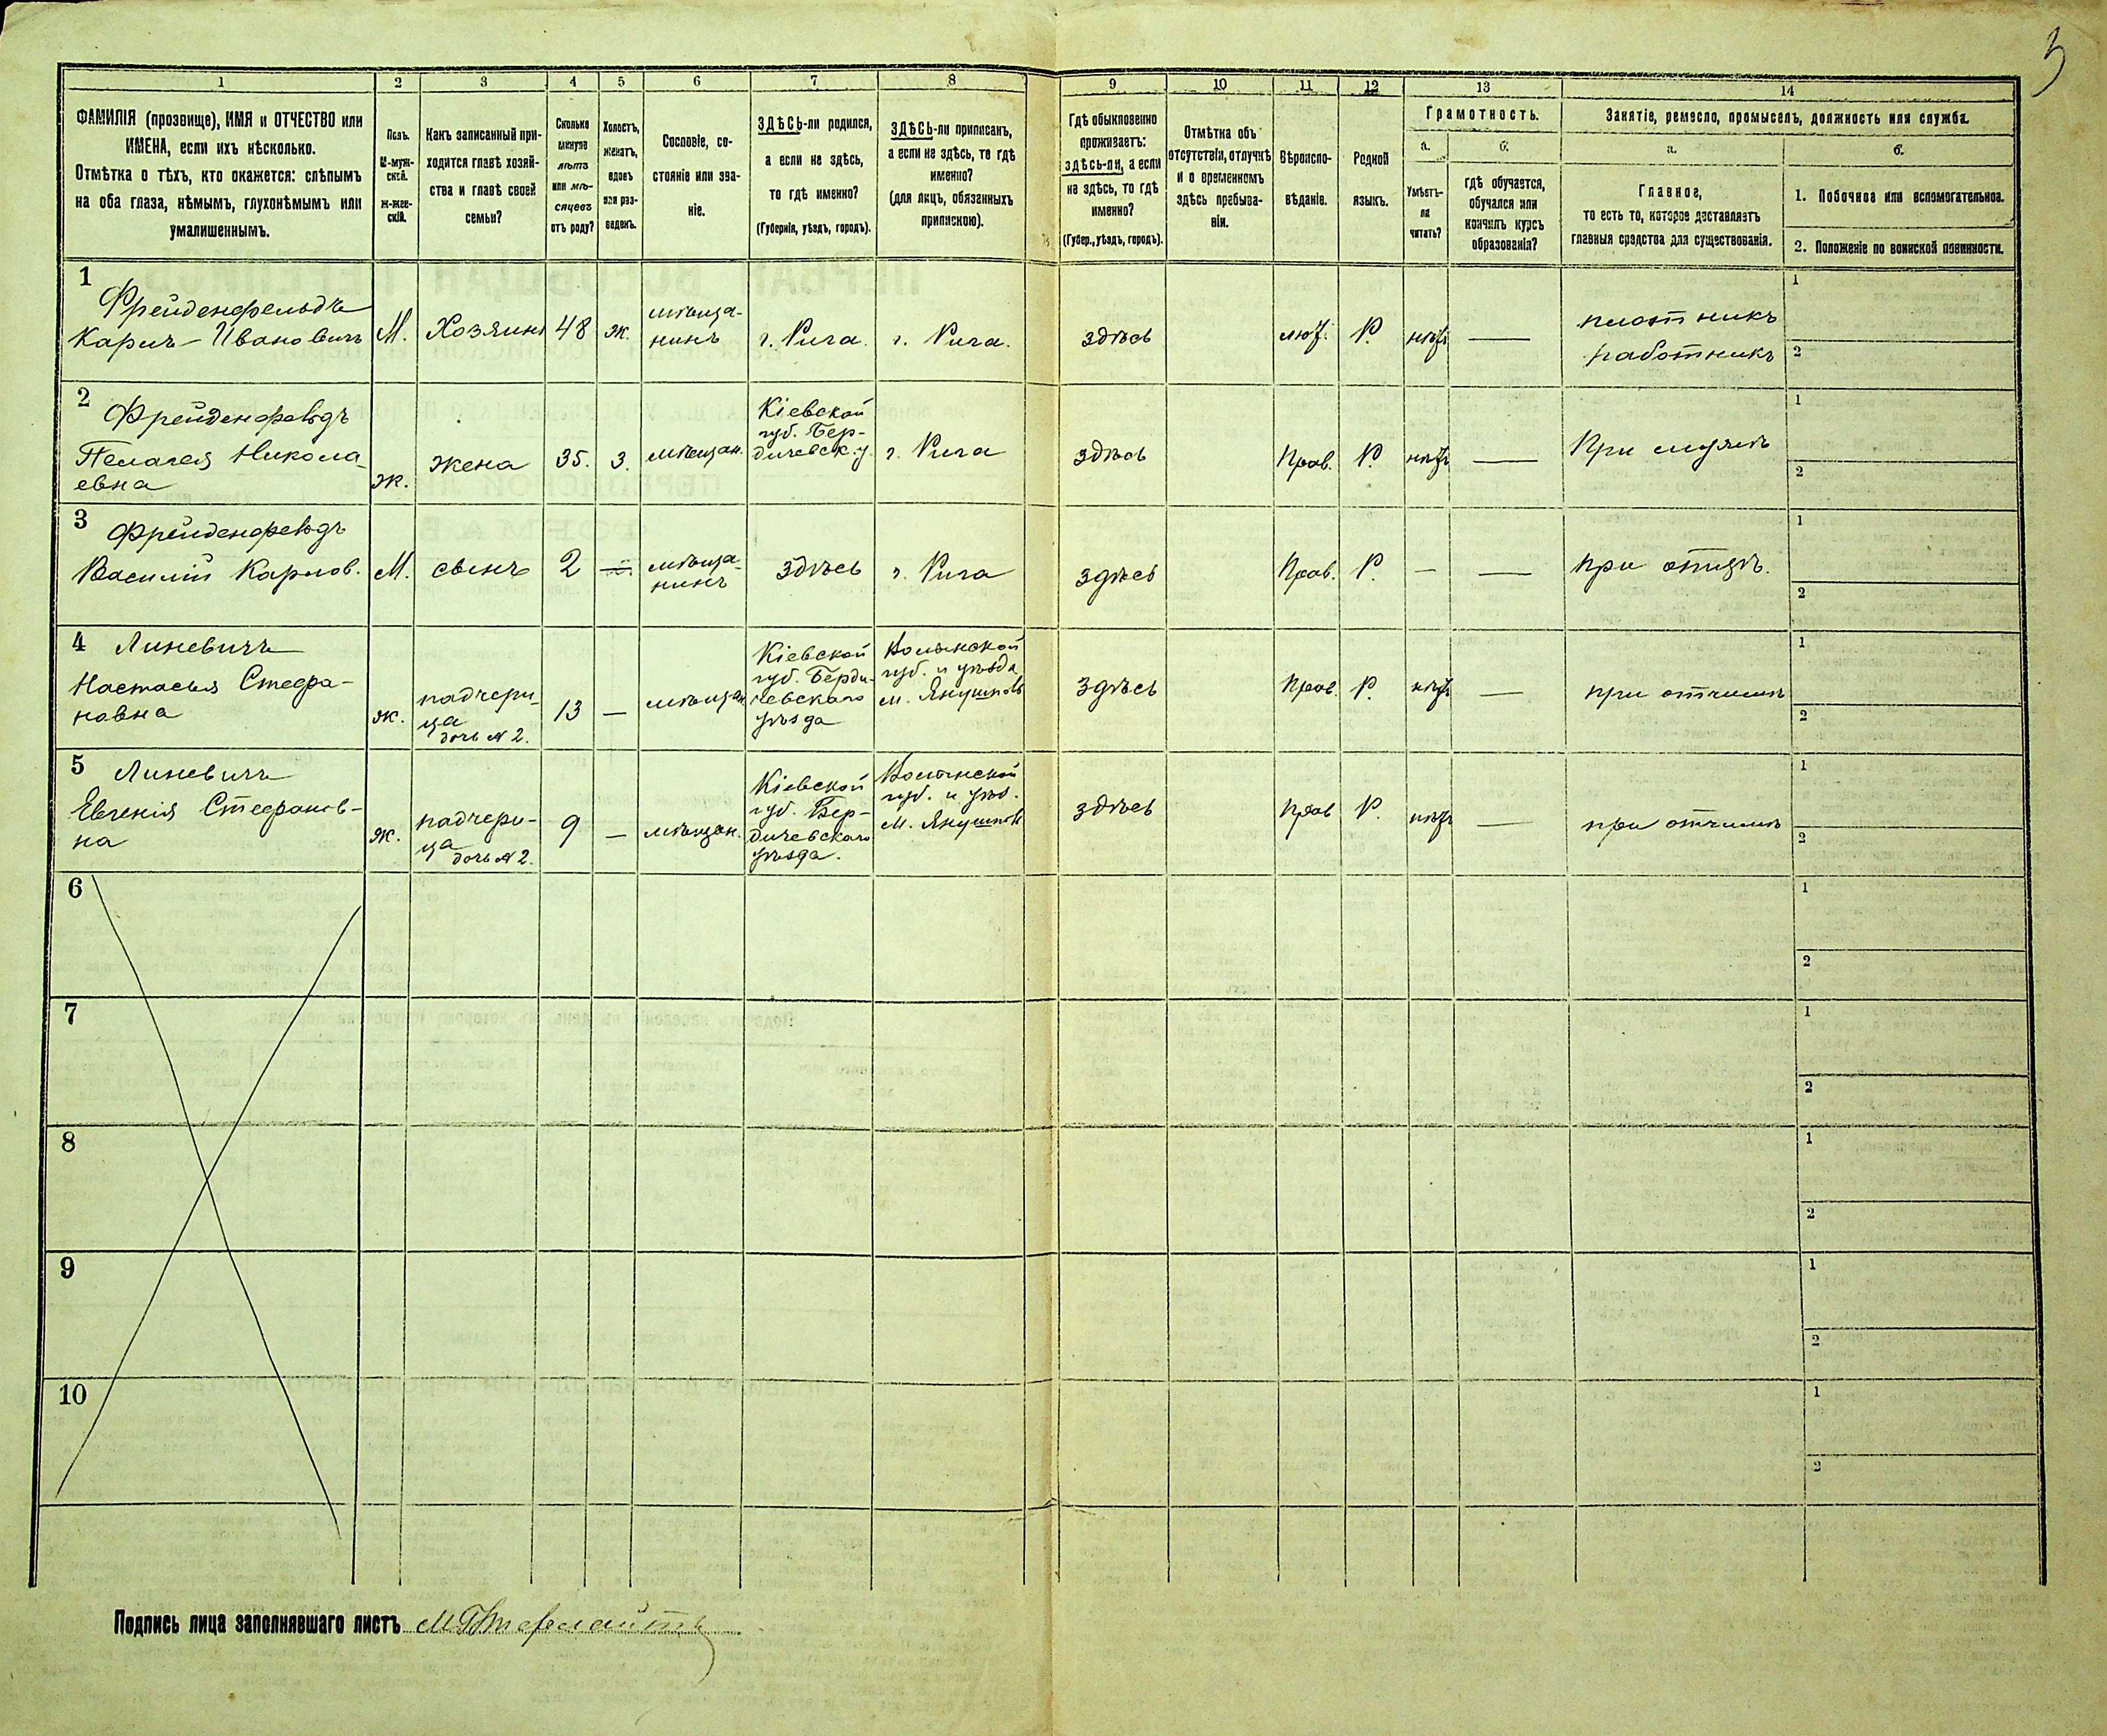 3
1 2 3 4 5 6 7 8 9 10 11 12 13 14
ФАМИЛІЯ (прозвище), ИМЯ и ОТЧЕСТВО или
ИМЕНА, если ихъ нѣсколько.
Отмѣтка о тѣхъ, кто окажется: слѣпымъ
на оба глаза, нѣмымъ, глухонѣмымъ или
умалишеннымъ.
Полъ.
М-муж-
ской.
Ж-жен-
скій.
Какъ записанный при-
ходится главѣ хозяй-
ства и главѣ своей
семьи?
Сколько
минуло
лѣтъ
или мѣ-
сяцевъ
отъ роду?
Холостъ,
женатъ,
вдовъ
или раз-
веденъ.
Сословіе, со-
стояніе или зва-
ніе.
ЗДѢСЬ-ли родился,
а если не здѣсь,
то гдѣ именно?
(Губернія, уѣздъ, городъ).
ЗДѢСЬ-ли приписанъ,
а если не здѣсь, то гдѣ
именно?
(для лицъ, обязанныхъ
припискою).
Гдѣ обыкновенно
проживаетъ:
здѣсь-ли, а если
не здѣсь, то гдѣ
именно?
(Губер., уѣздъ, городъ).
Отмѣтка объ
отсутствіи, отлучкѣ
и о временномъ
здѣсь пребыва-
ніи.
Вѣроиспо-
вѣданіе.
Родной
языкъ.
Грамотность.
а.
Умѣетъ-
ли
читать?
б.
Гдѣ обучается,
обучался или
кончилъ курсъ
образованія?
Занятіе, ремесло, промыселъ, должность или служба.
а.
Главное,
то есть то, которое доставляетъ
главныя средства для существованія.
б.
1. Побочное или вспомогательное.
2. Положеніе по воинской повинности.
1
Фрейденфельдъ
Карлъ Ивановичъ
М.
Хозяинъ
48
ж.
мѣща-
нинъ
г. Рига.
г. Рига.
здѣсь
лют.
Р.
нѣтъ
—
плотникъ
работникъ
1
2
2
Фрейденфельдъ
Пелагея Никола-
евна
ж.
жена
35.
З.
мѣщан.
Кіевской
губ. Бер-
дичевск. у.
г. Рига
здѣсь
Прав.
Р.
нѣтъ
—
При мужѣ
1
2
3
Фрейденфельдъ
Василій Карлов.
М.
сынъ
2
—
мѣща-
нинъ
здѣсь
г. Рига
здѣсь
Прав.
Р.
—
—
при отцѣ.
1
2
4
Линевичъ
Настасья Стефа-
новна
ж.
падчери-
ца
дочь № 2.
13
—
мѣщан.
Кіевской
губ. Берди-
чевскаго
уѣзда
Волынской
губ. и уѣзда
м. Янушполь
здѣсь
Прав.
Р.
нѣтъ
—
при отчимѣ
1
2
5
Линевичъ
Евгенія Стефанов-
на
ж.
падчери-
ца
дочь № 2.
9
—
мѣщан.
Кіевской
губ. Бер-
дичевскаго
уѣзда.
Волынской
губ. и уѣз.
м. Янушполь
здѣсь
Прав
Р.
нѣтъ
—
при отчимѣ
1
2
6
1
2
7
1
2
8
1
2
9
1
2
10
1
2
Подпись лица заполнявшаго листъ